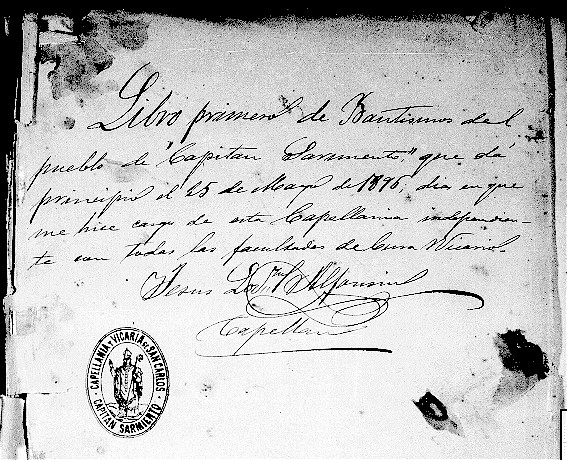 Libro primero de Bautismos del
pueblo de "Capitan Sarmiento," que dá
principio el 25 de Mayo de 1896, dia en que
me hice cargo de esta Capellania independien-
te con todas las facultades de Cura Vicario.
Jesus
Capellan
CAPELLANIA Y VICARIA DE SAN CARLOS
CAPITAN SARMIENTO